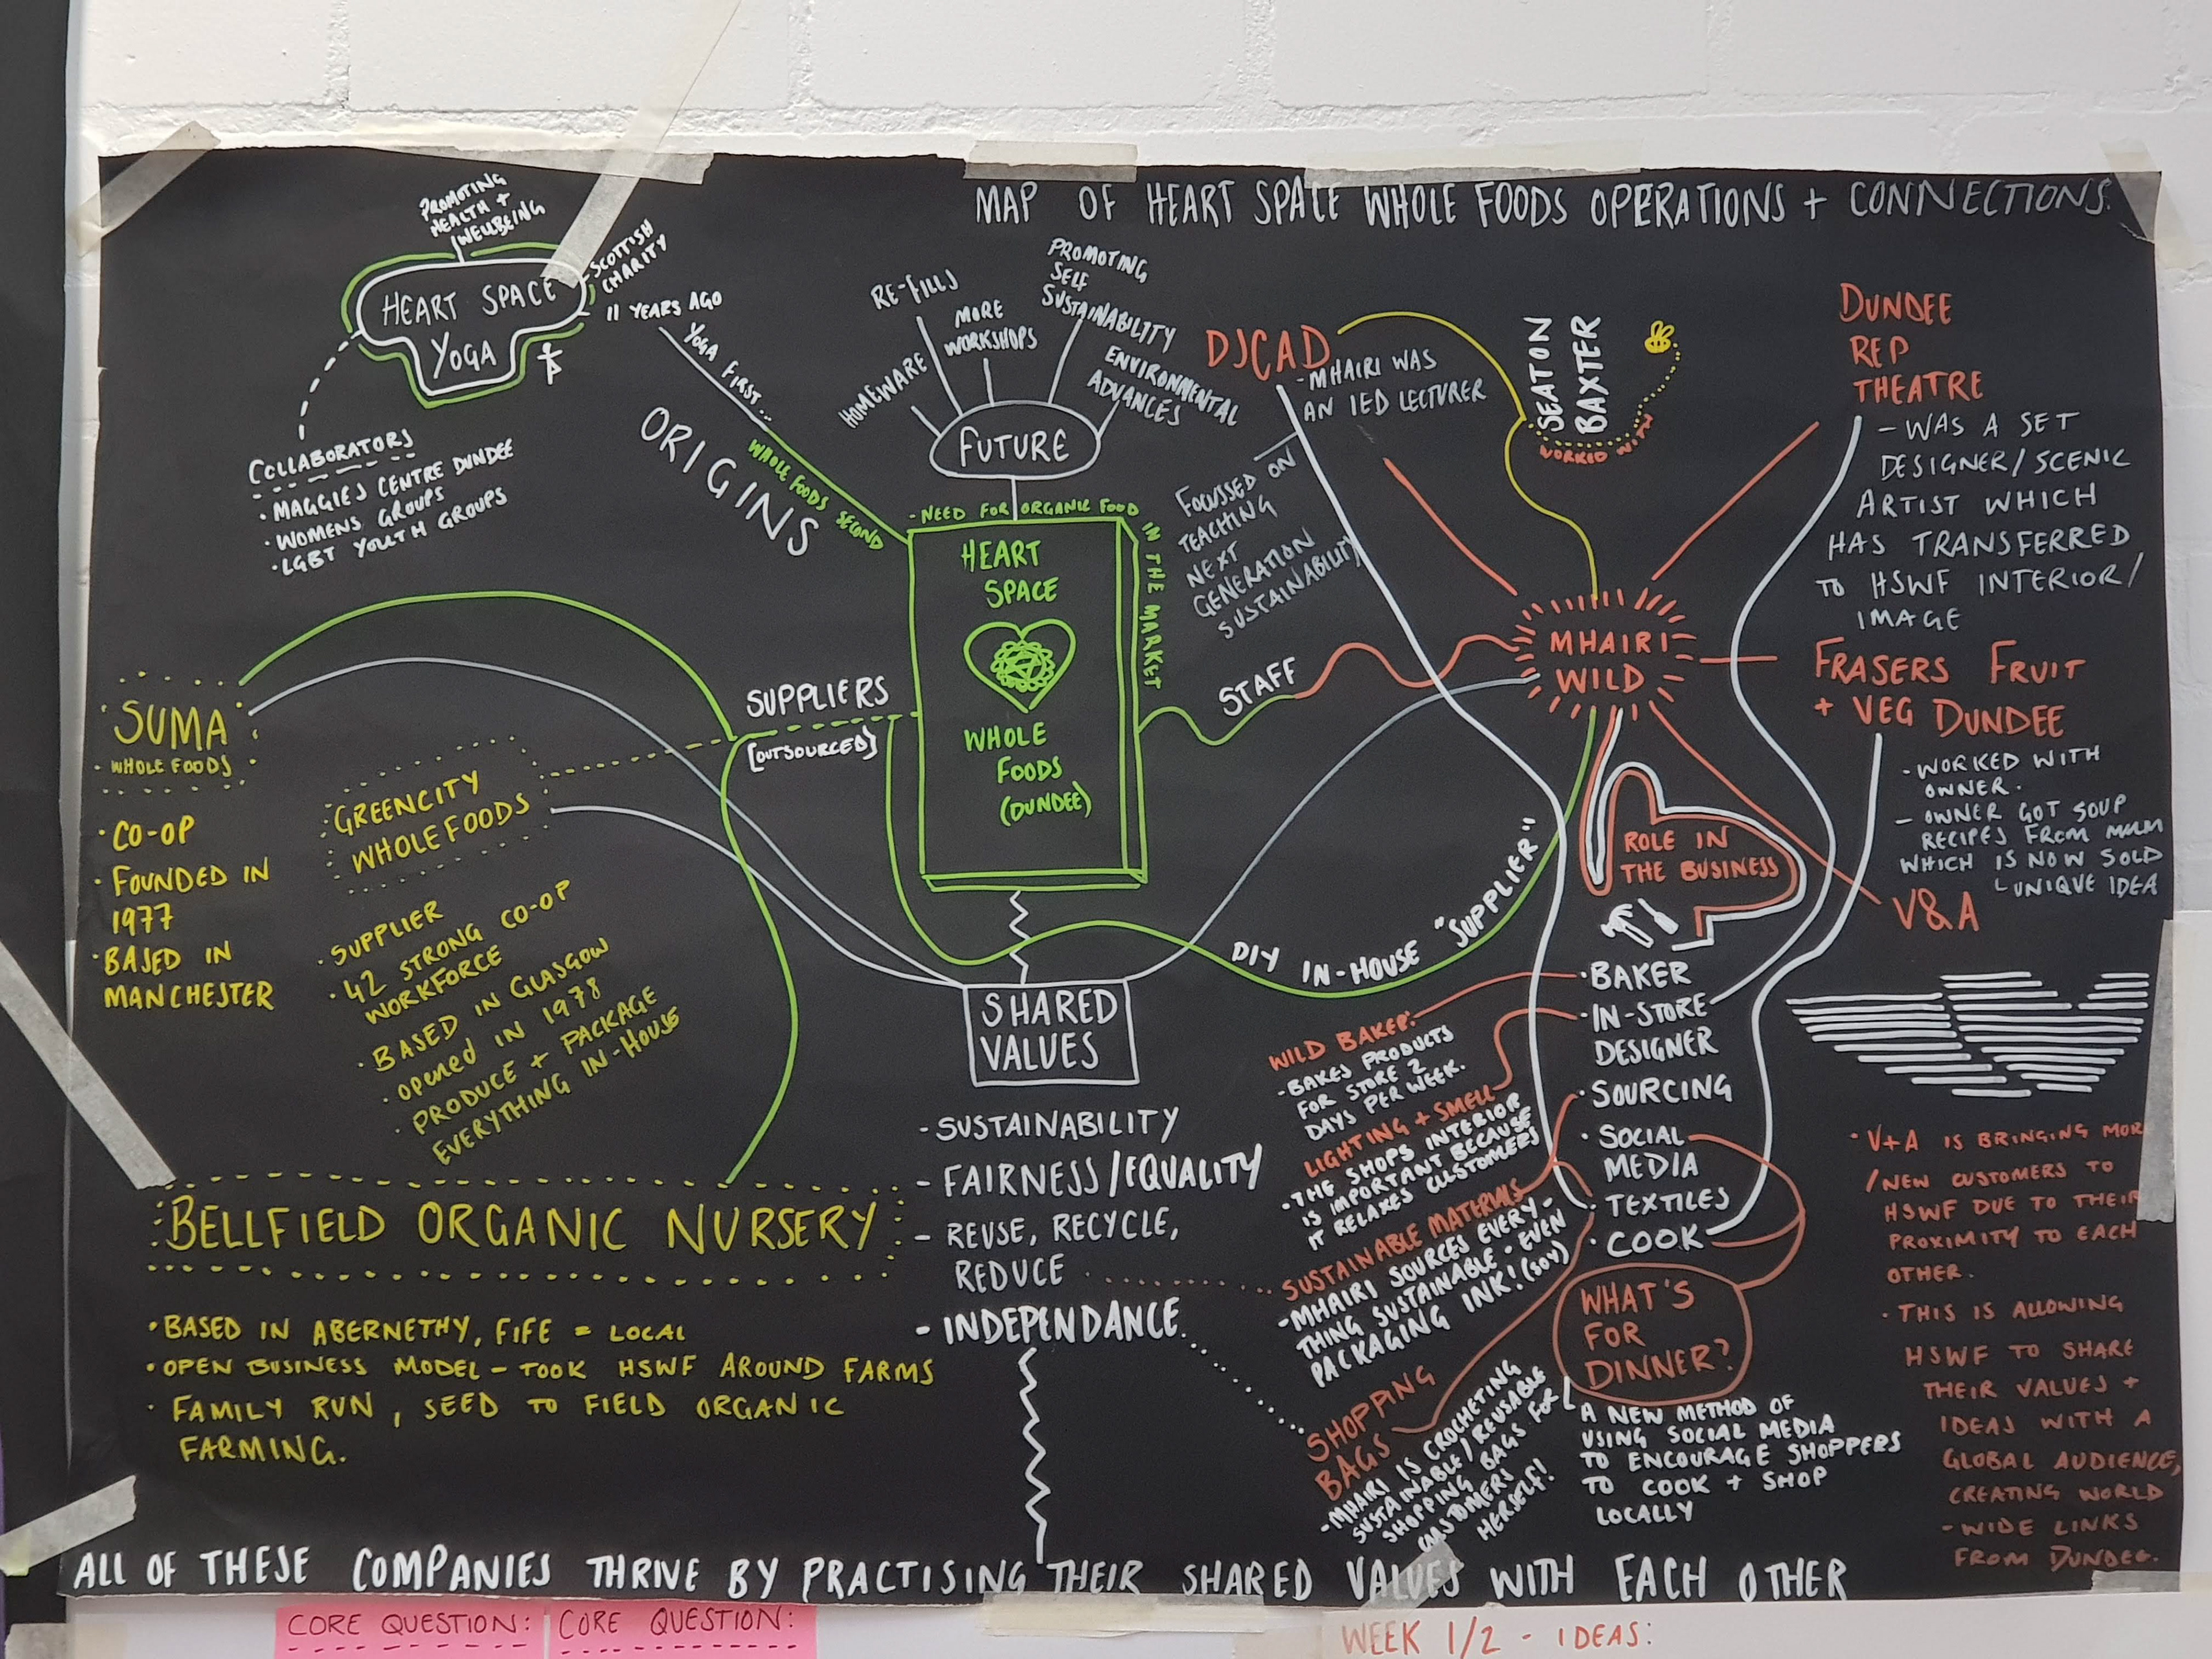 MAP OF HEART SPACE WHOLE FOODS OPERATIONS + CONNECTIONS.
PROMOTING
HEALTH +
WELLBEING
HEART SPACE
YOGA
SCOTTISH
CHARITY
11 YEARS AGO
COLLABORATORS
• MAGGIES CENTRE DUNDEE
• WOMENS GROUPS
• LGBT YOUTH GROUPS
YOGA FIRST...
WHOLE FOODS SECOND
ORIGINS
HOMEWARE
RE-FILLS
MORE
WORKSHOPS
PROMOTING
SELF
SUSTAINABILITY
ENVIRONMENTAL
ADVANCES
FUTURE
- NEED FOR ORGANIC FOOD
IN THE MARKET
HEART
SPACE
WHOLE
FOODS
(DUNDEE)
DJCAD
- MHAIRI WAS
AN IED LECTURER
FOCUSSED ON
TEACHING
NEXT
GENERATION
SUSTAINABILITY
SEATON
BAXTER
WORKED WITH
DUNDEE
REP
THEATRE
- WAS A SET
DESIGNER/SCENIC
ARTIST WHICH
HAS TRANSFERRED
TO HSWF INTERIOR/
IMAGE
STAFF
MHAIRI
WILD
FRASERS FRUIT
+ VEG DUNDEE
- WORKED WITH
OWNER.
- OWNER GOT SOUP
RECIPES FROM MUM
WHICH IS NOW SOLD
UNIQUE IDEA
V&A
SUPPLIERS
[OUTSOURCED]
SUMA
• WHOLE FOODS
• CO-OP
• FOUNDED IN
1977
• BASED IN
MANCHESTER
GREENCITY
WHOLEFOODS
• SUPPLIER
• 42 STRONG CO-OP
WORKFORCE
• BASED IN GLASGOW
• opened IN 1978
• PRODUCE + PACKAGE
EVERYTHING IN-HOUSE
BELLFIELD ORGANIC NURSERY
• BASED IN ABERNETHY, FIFE = LOCAL
• OPEN BUSINESS MODEL - TOOK HSWF AROUND FARMS
• FAMILY RUN, SEED TO FIELD ORGANIC
FARMING.
SHARED
VALUES
- SUSTAINABILITY
- FAIRNESS/EQUALITY
- REUSE, RECYCLE,
REDUCE
- INDEPENDANCE
DIY IN-HOUSE "SUPPLIER"
ROLE IN
THE BUSINESS
• BAKER
• IN-STORE
DESIGNER
• SOURCING
• SOCIAL
MEDIA
• TEXTILES
• COOK
WILD BAKER:
- BAKES PRODUCTS
FOR STORE 2
DAYS PER WEEK.
LIGHTING + SMELL
• THE SHOPS INTERIOR
IS IMPORTANT BECAUSE
IT RELAXES CUSTOMERS
SUSTAINABLE MATERIALS
- MHAIRI SOURCES EVERY-
THING SUSTAINABLE - EVEN
PACKAGING INK! (SOY)
SHOPPING
BAGS
- MHAIRI IS CROCHETING
SUSTAINABLE/REUSABLE
SHOPPING BAGS FOR
CUSTOMERS
HERSELF!
WHAT'S
FOR
DINNER?
A NEW METHOD OF
USING SOCIAL MEDIA
TO ENCOURAGE SHOPPERS
TO COOK + SHOP
LOCALLY
• V+A IS BRINGING MOR
/NEW CUSTOMERS TO
HSWF DUE TO THEIR
PROXIMITY TO EACH
OTHER.
• THIS IS ALLOWING
HSWF TO SHARE
THEIR VALUES +
IDEAS WITH A
GLOBAL AUDIENCE,
CREATING WORLD
-WIDE LINKS
FROM DUNDEE.
ALL OF THESE COMPANIES THRIVE BY PRACTISING THEIR SHARED VALUES WITH EACH OTHER
CORE QUESTION:
CORE QUESTION:
WEEK 1/2 - IDEAS: